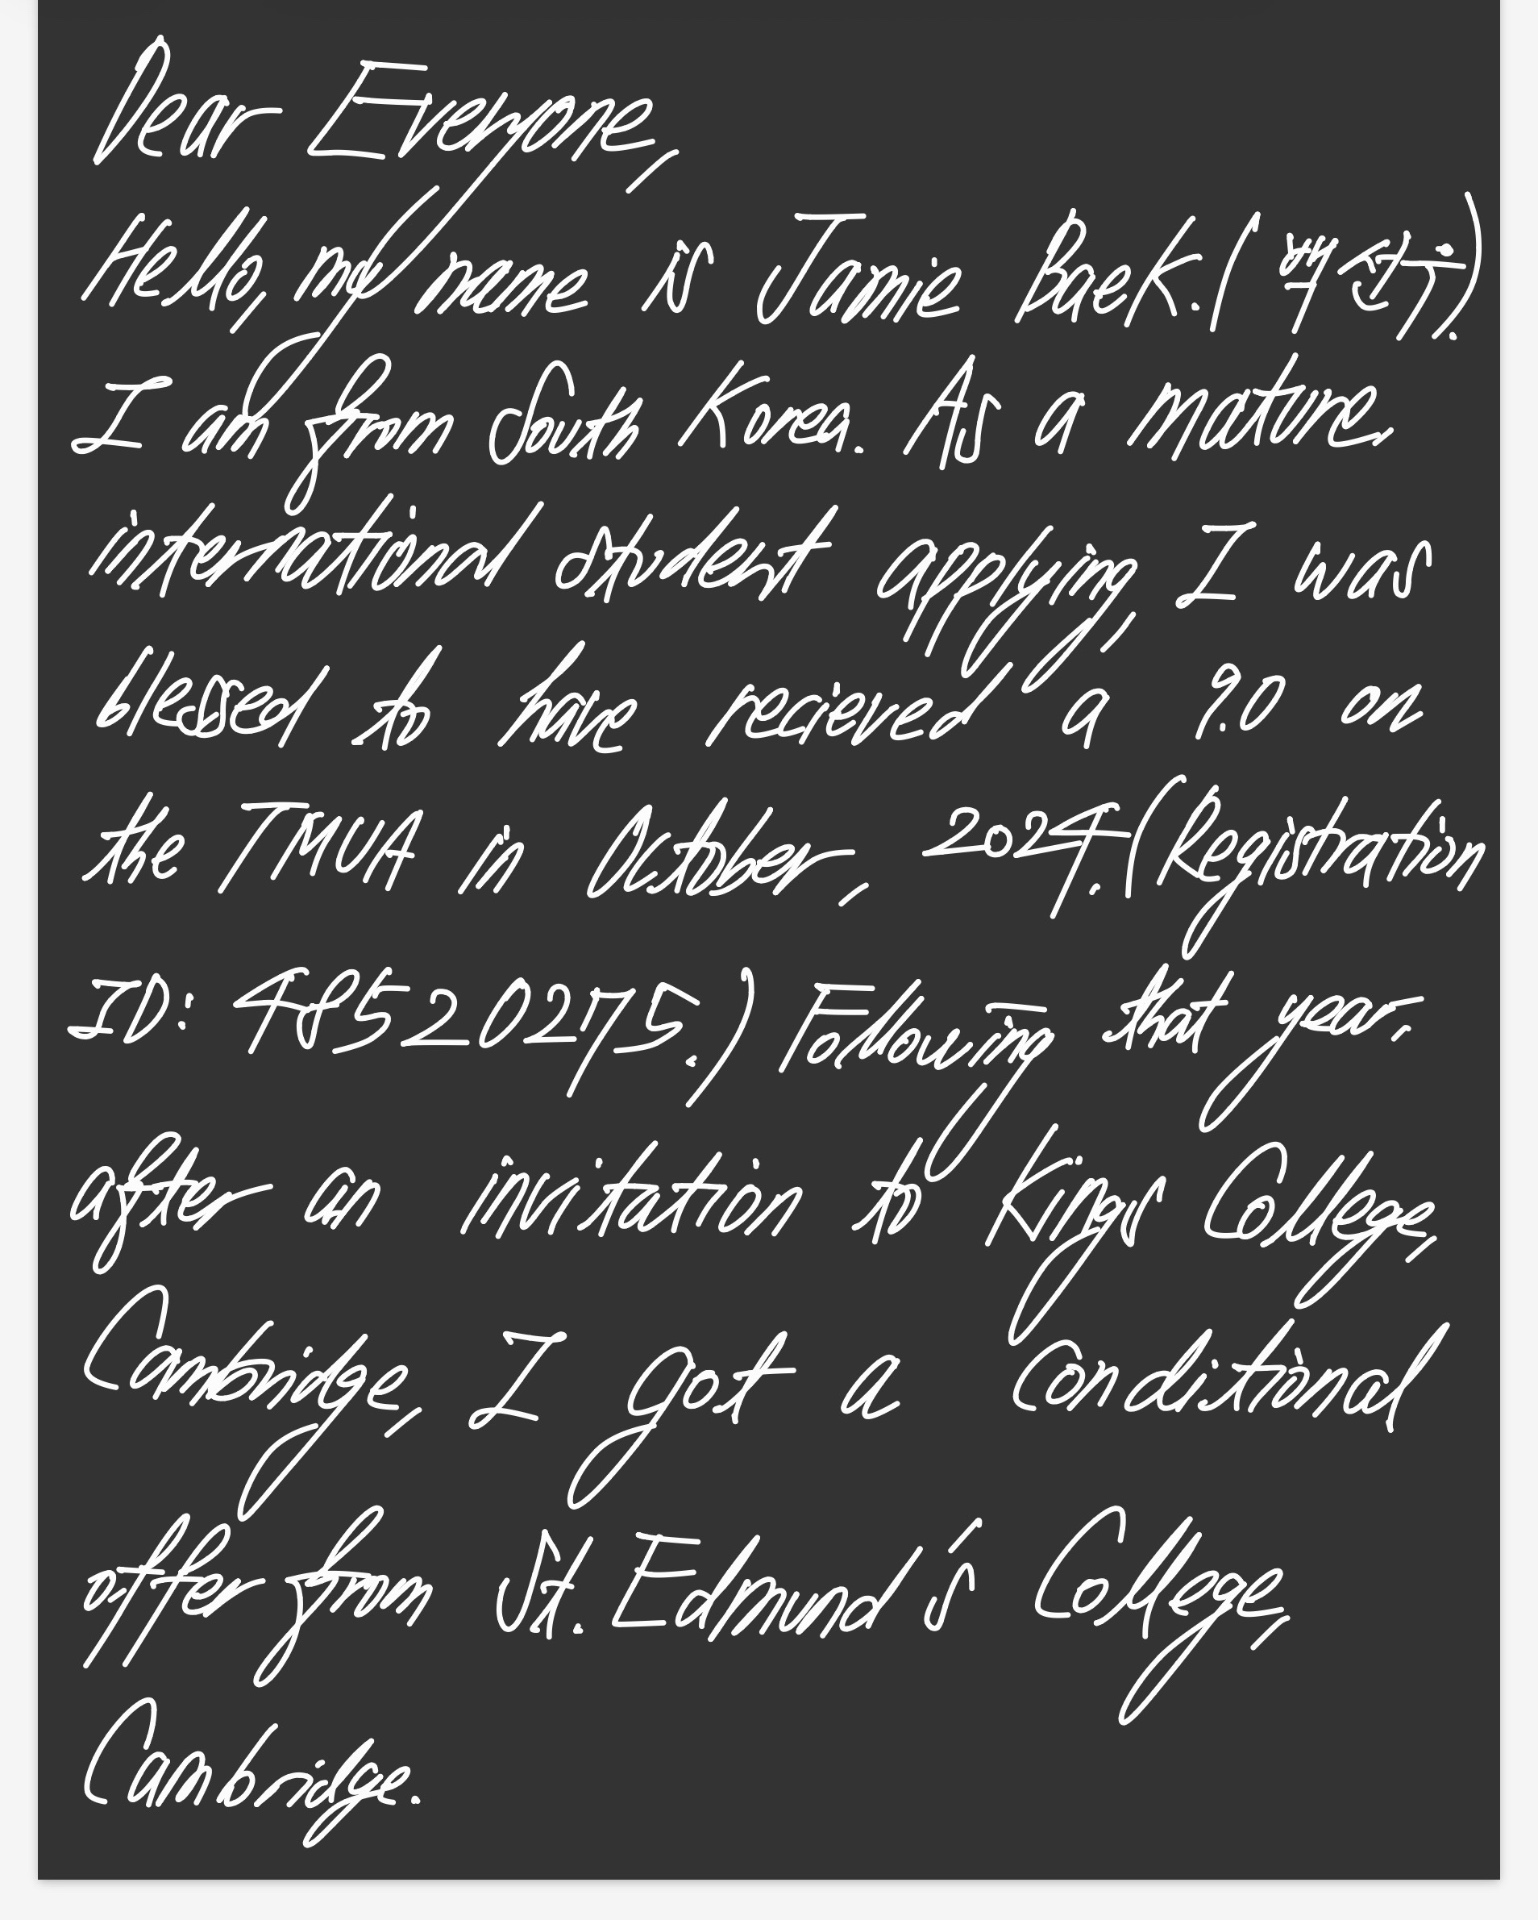 Dear Everyone,
Hello, my name is Jamie Baek. (백승주).
I am from South Korea. As a mature,
international student applying, I was
blessed to have recieved a 9.0 on
the TMUA in October, 2024. (Registration
ID: 48520275.) Following that year,
after an invitation to Kings College,
Cambridge, I got a Conditional
offer from St. Edmund's College,
Cambridge.